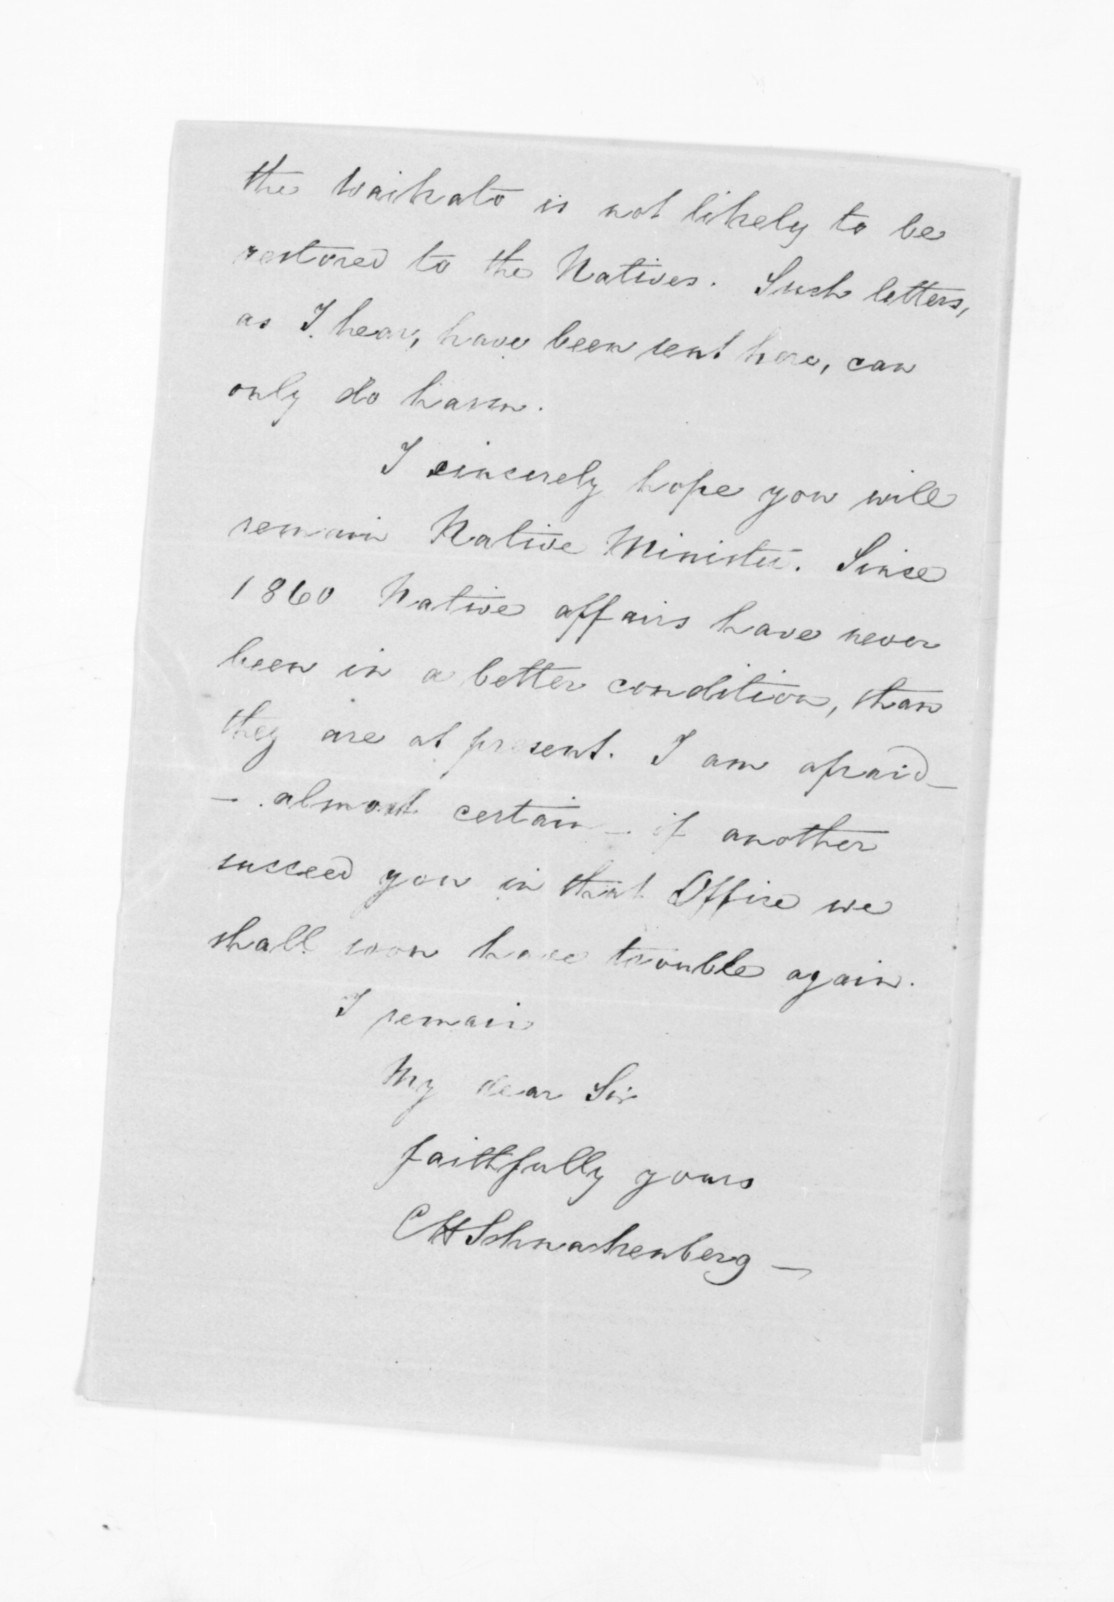 the Waikato is not likely to be
restored to the Natives. Such letters,
as I hear, have been sent here, can
only do harm.
I sincerely hope you will
remain Native Minister. Since
1860 Native affairs have never
been in a better condition, than
they are at present. I am afraid _
_ almost certain _ if another
succeed you in that Office we
shall soon have trouble again.
I remain
My dear Sir
faithfully yours
CHSchnackenberg _